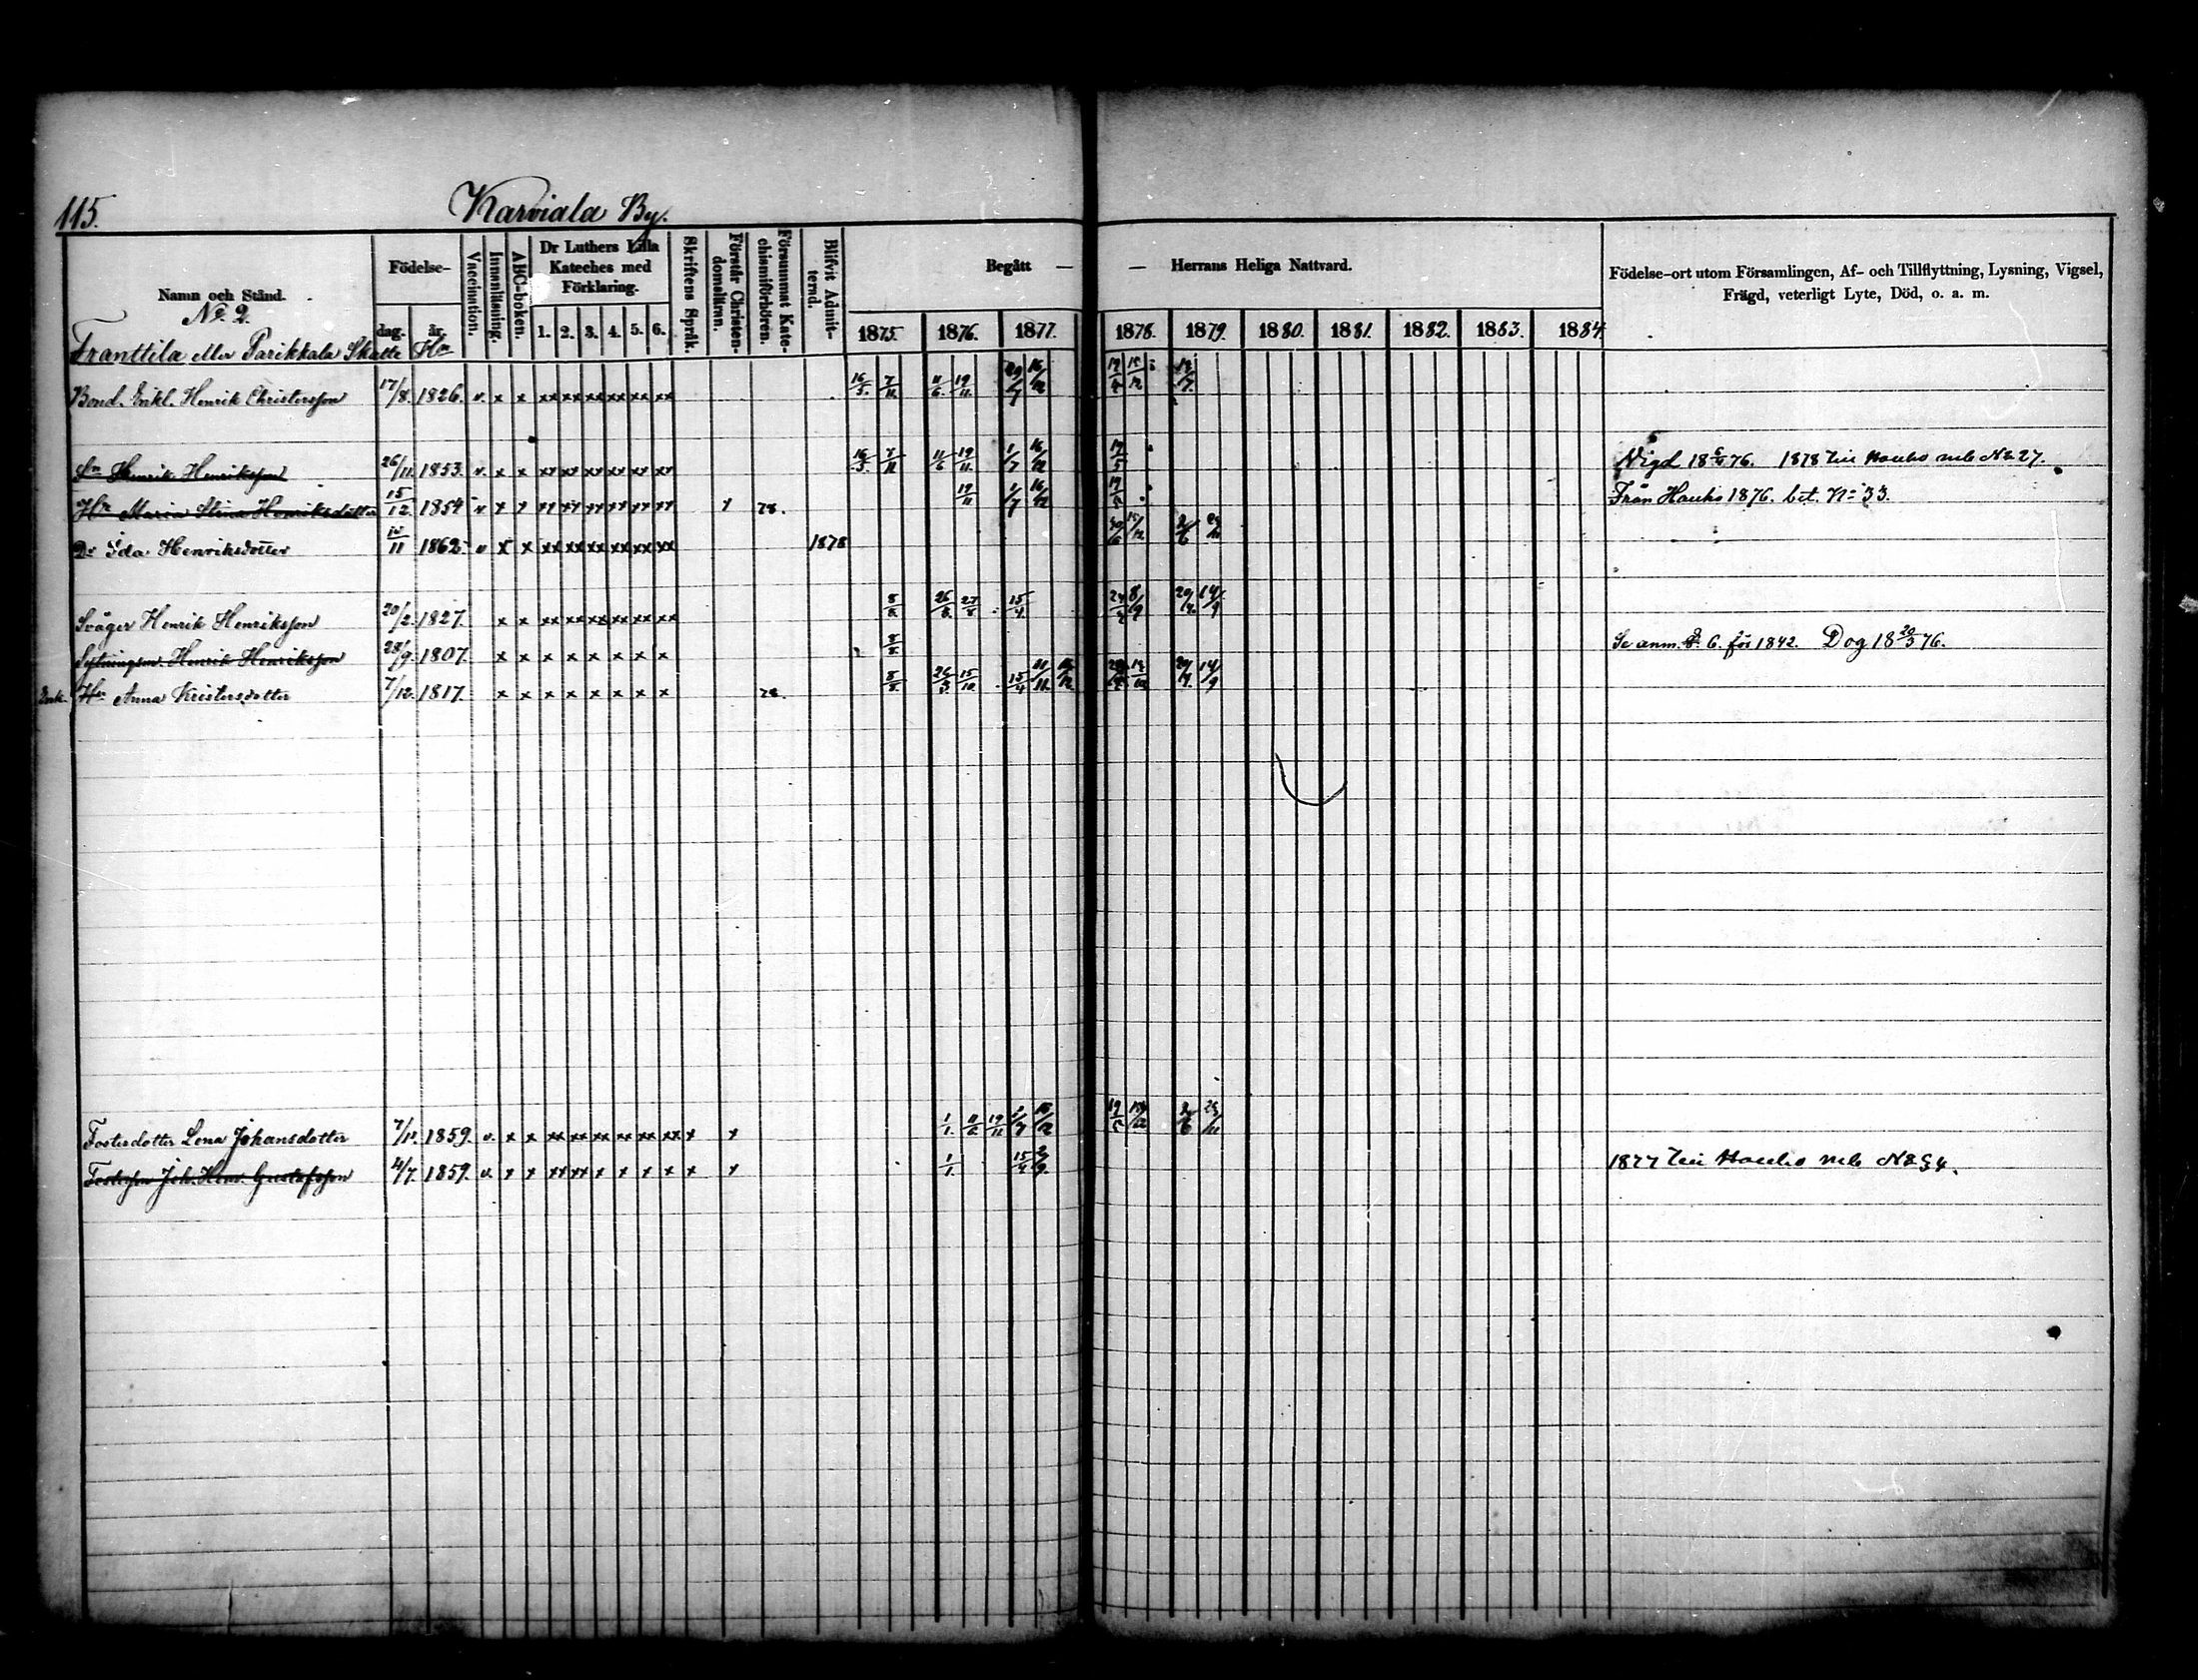 115.
Karviala By.
Namn och Stånd.
Födelse-
dag.
år.
Vaccination.
Innanläsning.
ABC-boken.
Dr Luthers Lilla Kateches med Förklaring.
1. 2. 3. 4. 5. 6.
Skriftens Språk.
Förstår Christendomsläran.
Försummat Katechismiförhören.
Blifvit Admitterad.
Begått — — Herrans Heliga Nattvard.
1875. 1876. 1877. 1878. 1879. 1880. 1881. 1882. 1883. 1884.
Födelse-ort utom Församlingen, Af- och Tillflyttning, Lysning, Vigsel,
Frägd, veterligt Lyte, Död, o. a. m.
No. 2.
Franttila eller Parikkala Skatte Hn
Bond. Enkl. Henrik Christersson 17/8. 1826. v. x x xx xx xx xx xx xx 16/5. 7/11. 11/6. 19/11.
Sn Henrik Henriksson 26/11. 1853. v. x x xx xx xx xx xx xx 16/5. 7/11 11/6 19/11. 1/7 16/12 19/5 Vigd 1876. 1878 till Hauho mb No 27.
Hu Maria Stina Henriksdotter 15/12. 1854 v x x xx xx xx xx xx xx x 78. 19/11 1/7 16/12 Från Hauho 1876. bet. No 33.
Dr Ida Henriksdotter 1862 v x x xx xx xx xx xx xx 1878
Svåger Henrik Henriksson 20/2. 1827. x x xx xx xx xx xx xx 8/8. 26/3. 15/4.
Sytningsm. Henrik Henriksson 28/9. 1807. x x x x x x x x 8/8. Se anm. 6. för 1842. Dog 18 20/3 76.
Enk. Hu Anna Kristersdotter 7/12. 1817. x x x x x x x x 8/8. 26/3 15/10. 15/4 14/9
Fosterdotter Lena Johansdotter 1859. v. x x xx xx xx xx xx xx x x 1/1. 19/11
Fosterson Joh. Henr. Gustafsson 4/7. 1859. v. x x xx xx x x x x x x 1/1. 15/4 1877 till Hauho mb No 54.